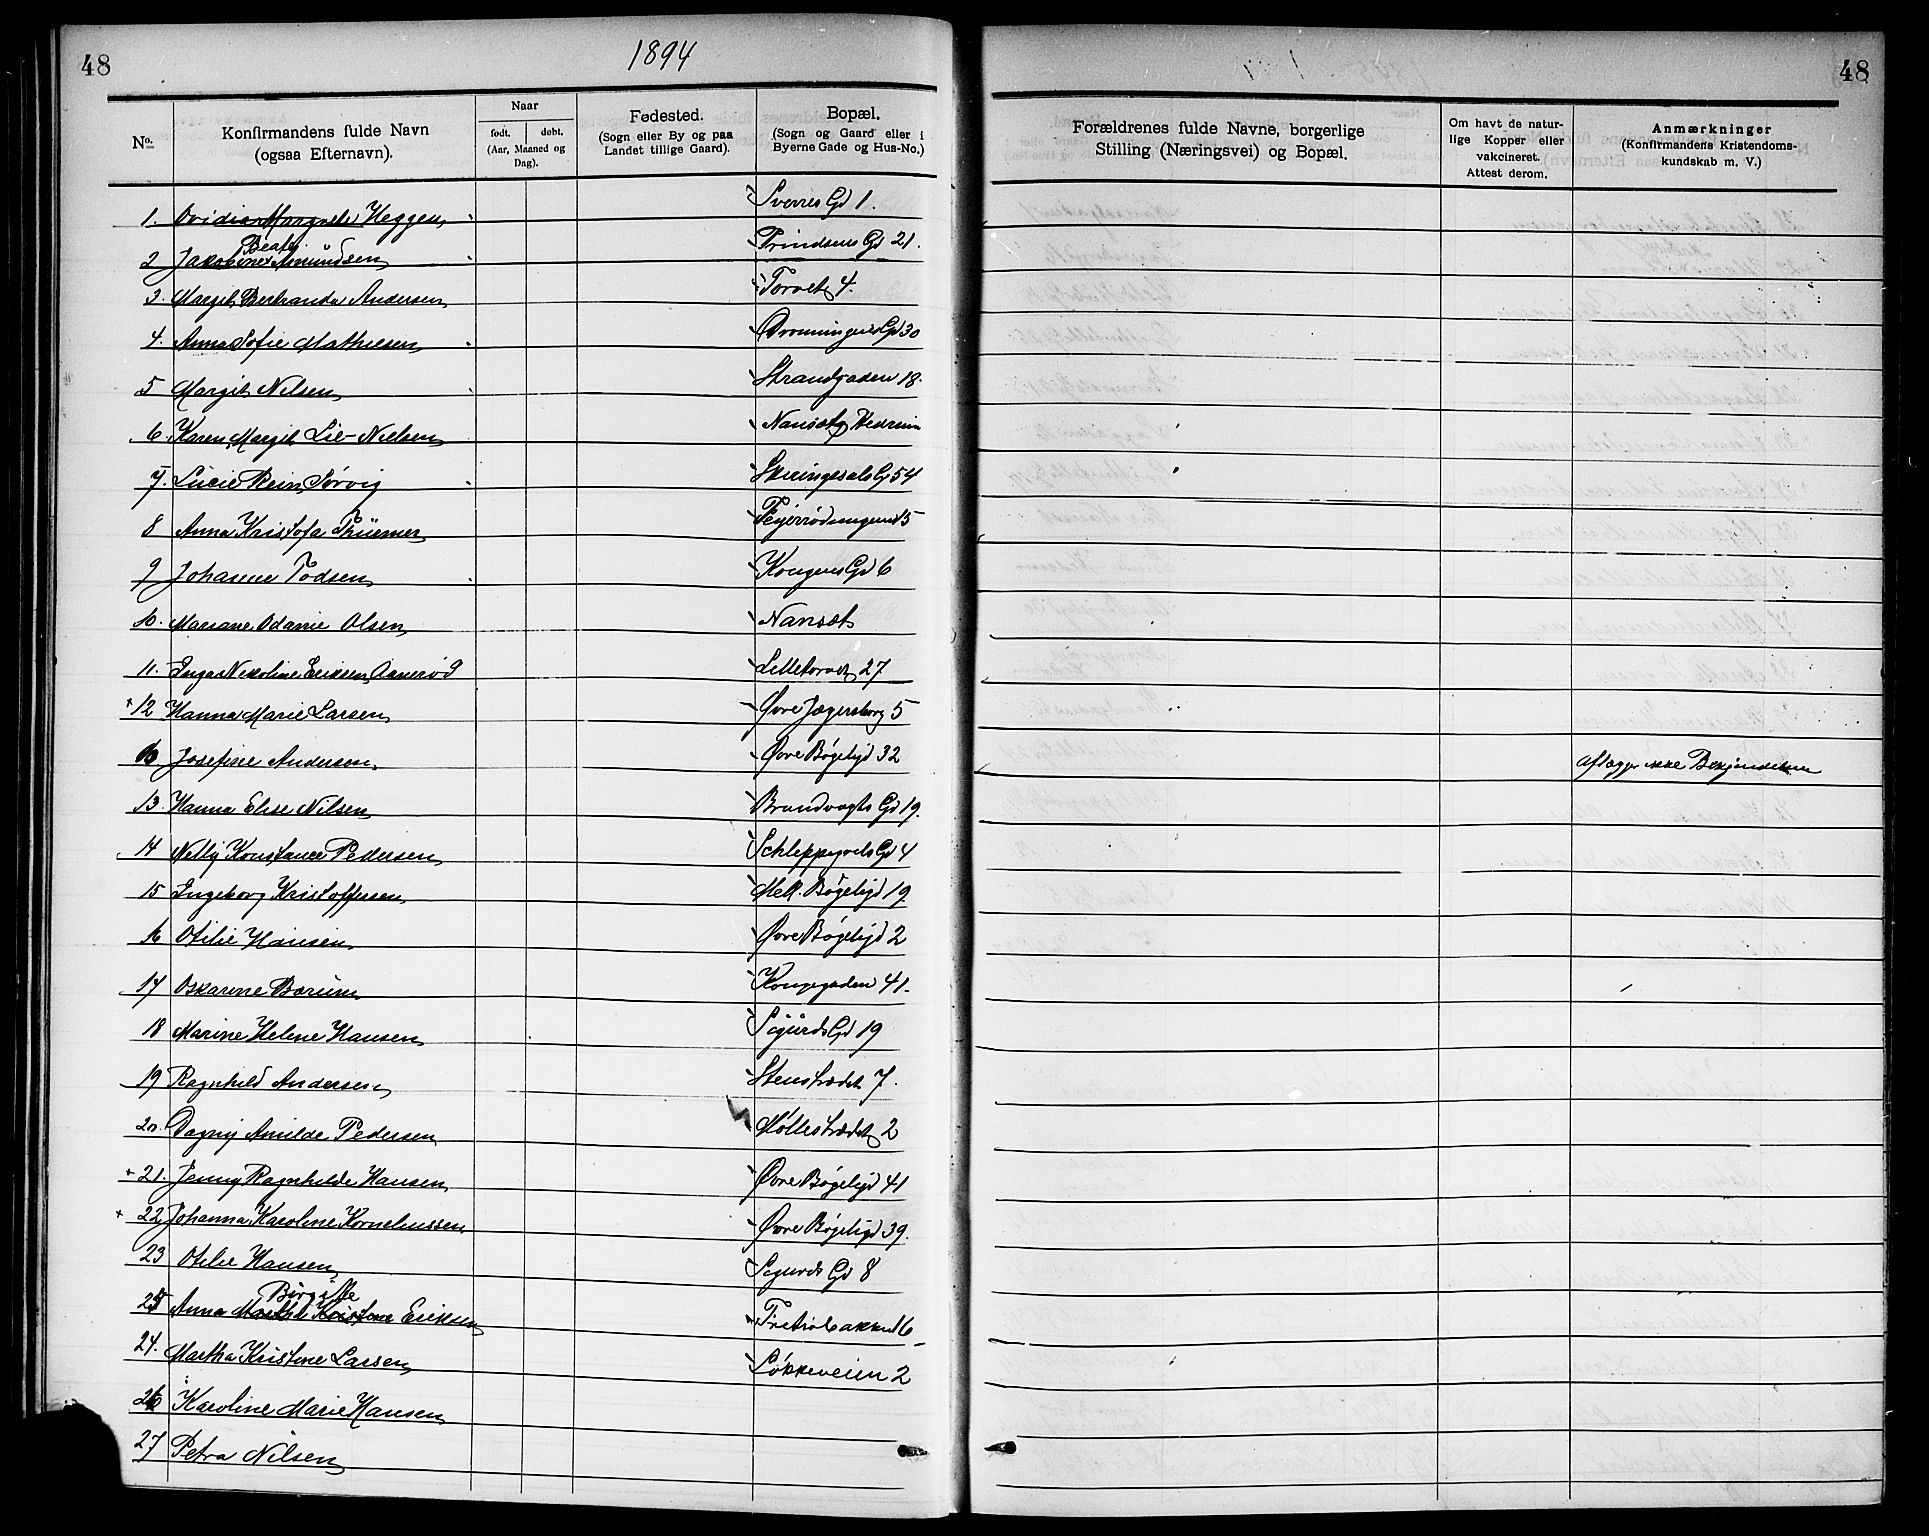 48
1894
48
No.
Konfirmandens fulde Navn
(ogsaa Efternavn).
Naar
født.
døbt.
(Aar, Maaned og
Dag).
Fødested.
(Sogn eller By og paa
Landet tillige Gaard).
Bopæl.
(Sogn og Gaard eller i
Byerne Gade og Hus-No.)
Forældrenes fulde Navne, borgerlige
Stilling (Næringsvei) og Bopæl.
Om havt de natur-
lige Kopper eller
vakcineret.
Attest derom.
Anmærkninger
(Konfirmandens Kristendoms-
kundskab m. V.)
1. Ovidia Margrete Heggen Sverres Gd 1.
Beate
2 Jakobine Amundsen Prindsens Gd 21.
3. Margit Bertranda Andersen Torvet 4.
4. Anna Sofie Mathiesen Dronningens Gd 30
5 Margit Nilsen Strandgaden 18.
6. Karen Margit Lie-Nielsen Nansæt Hedrum
7. Lucie Rein Sørvig Skiringssals Gd 54
8 Anna Kristofa Thüemer 15
9 Johanne Todsen Kongens Gd 6
10. Mariane Odanie Olsen Nansæt
11. Inga Nikoline Eriksen Aanerød Lilletorvet 27
+ 12 Hanna Marie Larsen Øvre Jægersborg 5
Josefine Andersen Øvre Bøgeligd 32 aflægger ikke Bekjendelsen
13. Hanna Elise Nilsen Brandvagts Gd 19.
14 Nelly Konstance Pedersen Schleppegrels Gd 4
15 Ingeborg Kristoffersen Mell. Bøgeligd 19.
16 Otilie Hansen Øvre Bøgeligd 2
17 Oskarine Borum Kongegaden 41.
18 Marine Helene Hansen Sigurds Gd 19
19 Ragnhild Andersen Stenstrædet 7.
20. Dagny Amilde Pedersen Møllestrædet 2
+ 21. Jenny Ragnhilde Hansen Øvre Bøgeligd 41
+ 22 Johanna Karoline Korneliussen Øvre Bøgeligd 39.
23 Otilie Hansen Sigurds Gd 8
Birgitte
25 Anna Martha Kristine Eriksen 16
24. Martha Kristine Larsen Løkkeveien 2
26 Karoline Marie Hansen
27 Petra Nilsen